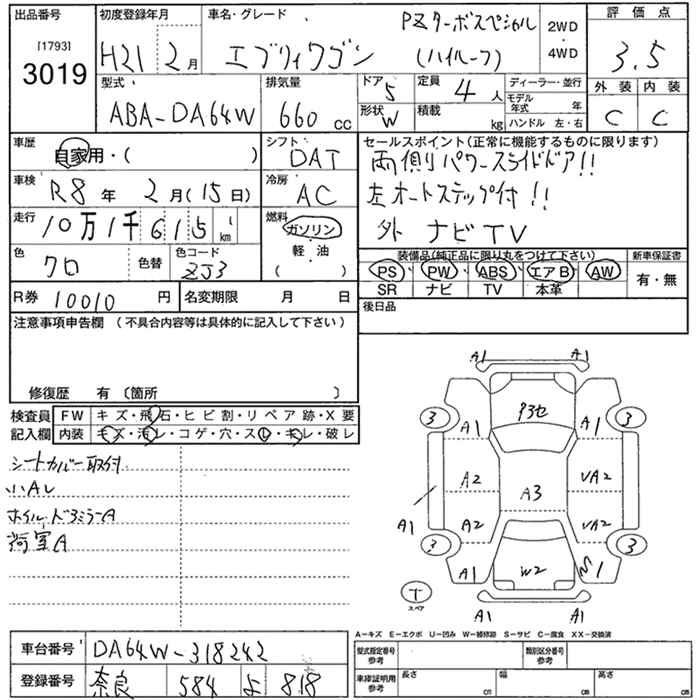 出品番号 [1793] 3019
初度登録年月 H21 2月
車名・グレード エブリィワゴン PZターボスペシャル (ハイルーフ)
2WD
4WD
評価点 3.5
外装 内装
C C
型式 ABA-DA64W
排気量 660 cc
ドア 5
形状 W
定員 4 人
積載 kg
ディーラー・並行
モデル年式 年
ハンドル 左・右
車歴 自家用・( )
シフト DAT
車検 R8年 2月(15日)
冷房 AC
走行 10万1千615 km
燃料 ガソリン
軽・油
( )
色 クロ 色替
色コード ZJ3
R券 10010 円
名変期限 月 日
セールスポイント(正常に機能するものに限ります)
両側りパワースライドドア!!
左オートステップ付!!
外 ナビ TV
装備品(純正品に限り丸をつけて下さい)
PS PW ABS エアB AW
SR ナビ TV 本革
新車保証書
有・無
後日品
注意事項申告欄 (不具合内容等は具体的に記入して下さい)
修復歴 有 〔箇所 〕
検査員記入欄
FW キズ・飛石・ヒビ割・リペア跡・X要
内装 キズ・汚レ・コゲ・穴・スレ・キレ・破レ
シートカバー取付
小AU
ホイル、ドアミラーA
荷室A
A1 A1
3 3
クヨセ
A1 A1
A2 UA2
A3
A1 A2 UA2
3 3
A1 W2 1
T スペア
A1 A1
A-キズ E-エクボ U-凹み W-補修跡 S-サビ C-腐食 XX-交換済
車台番号 DA64W-318242
登録番号 奈良 584 よ 818
型式指定番号 参考
類別区分番号 参考
車庫証明用 参考
長さ cm
幅 cm
高さ cm